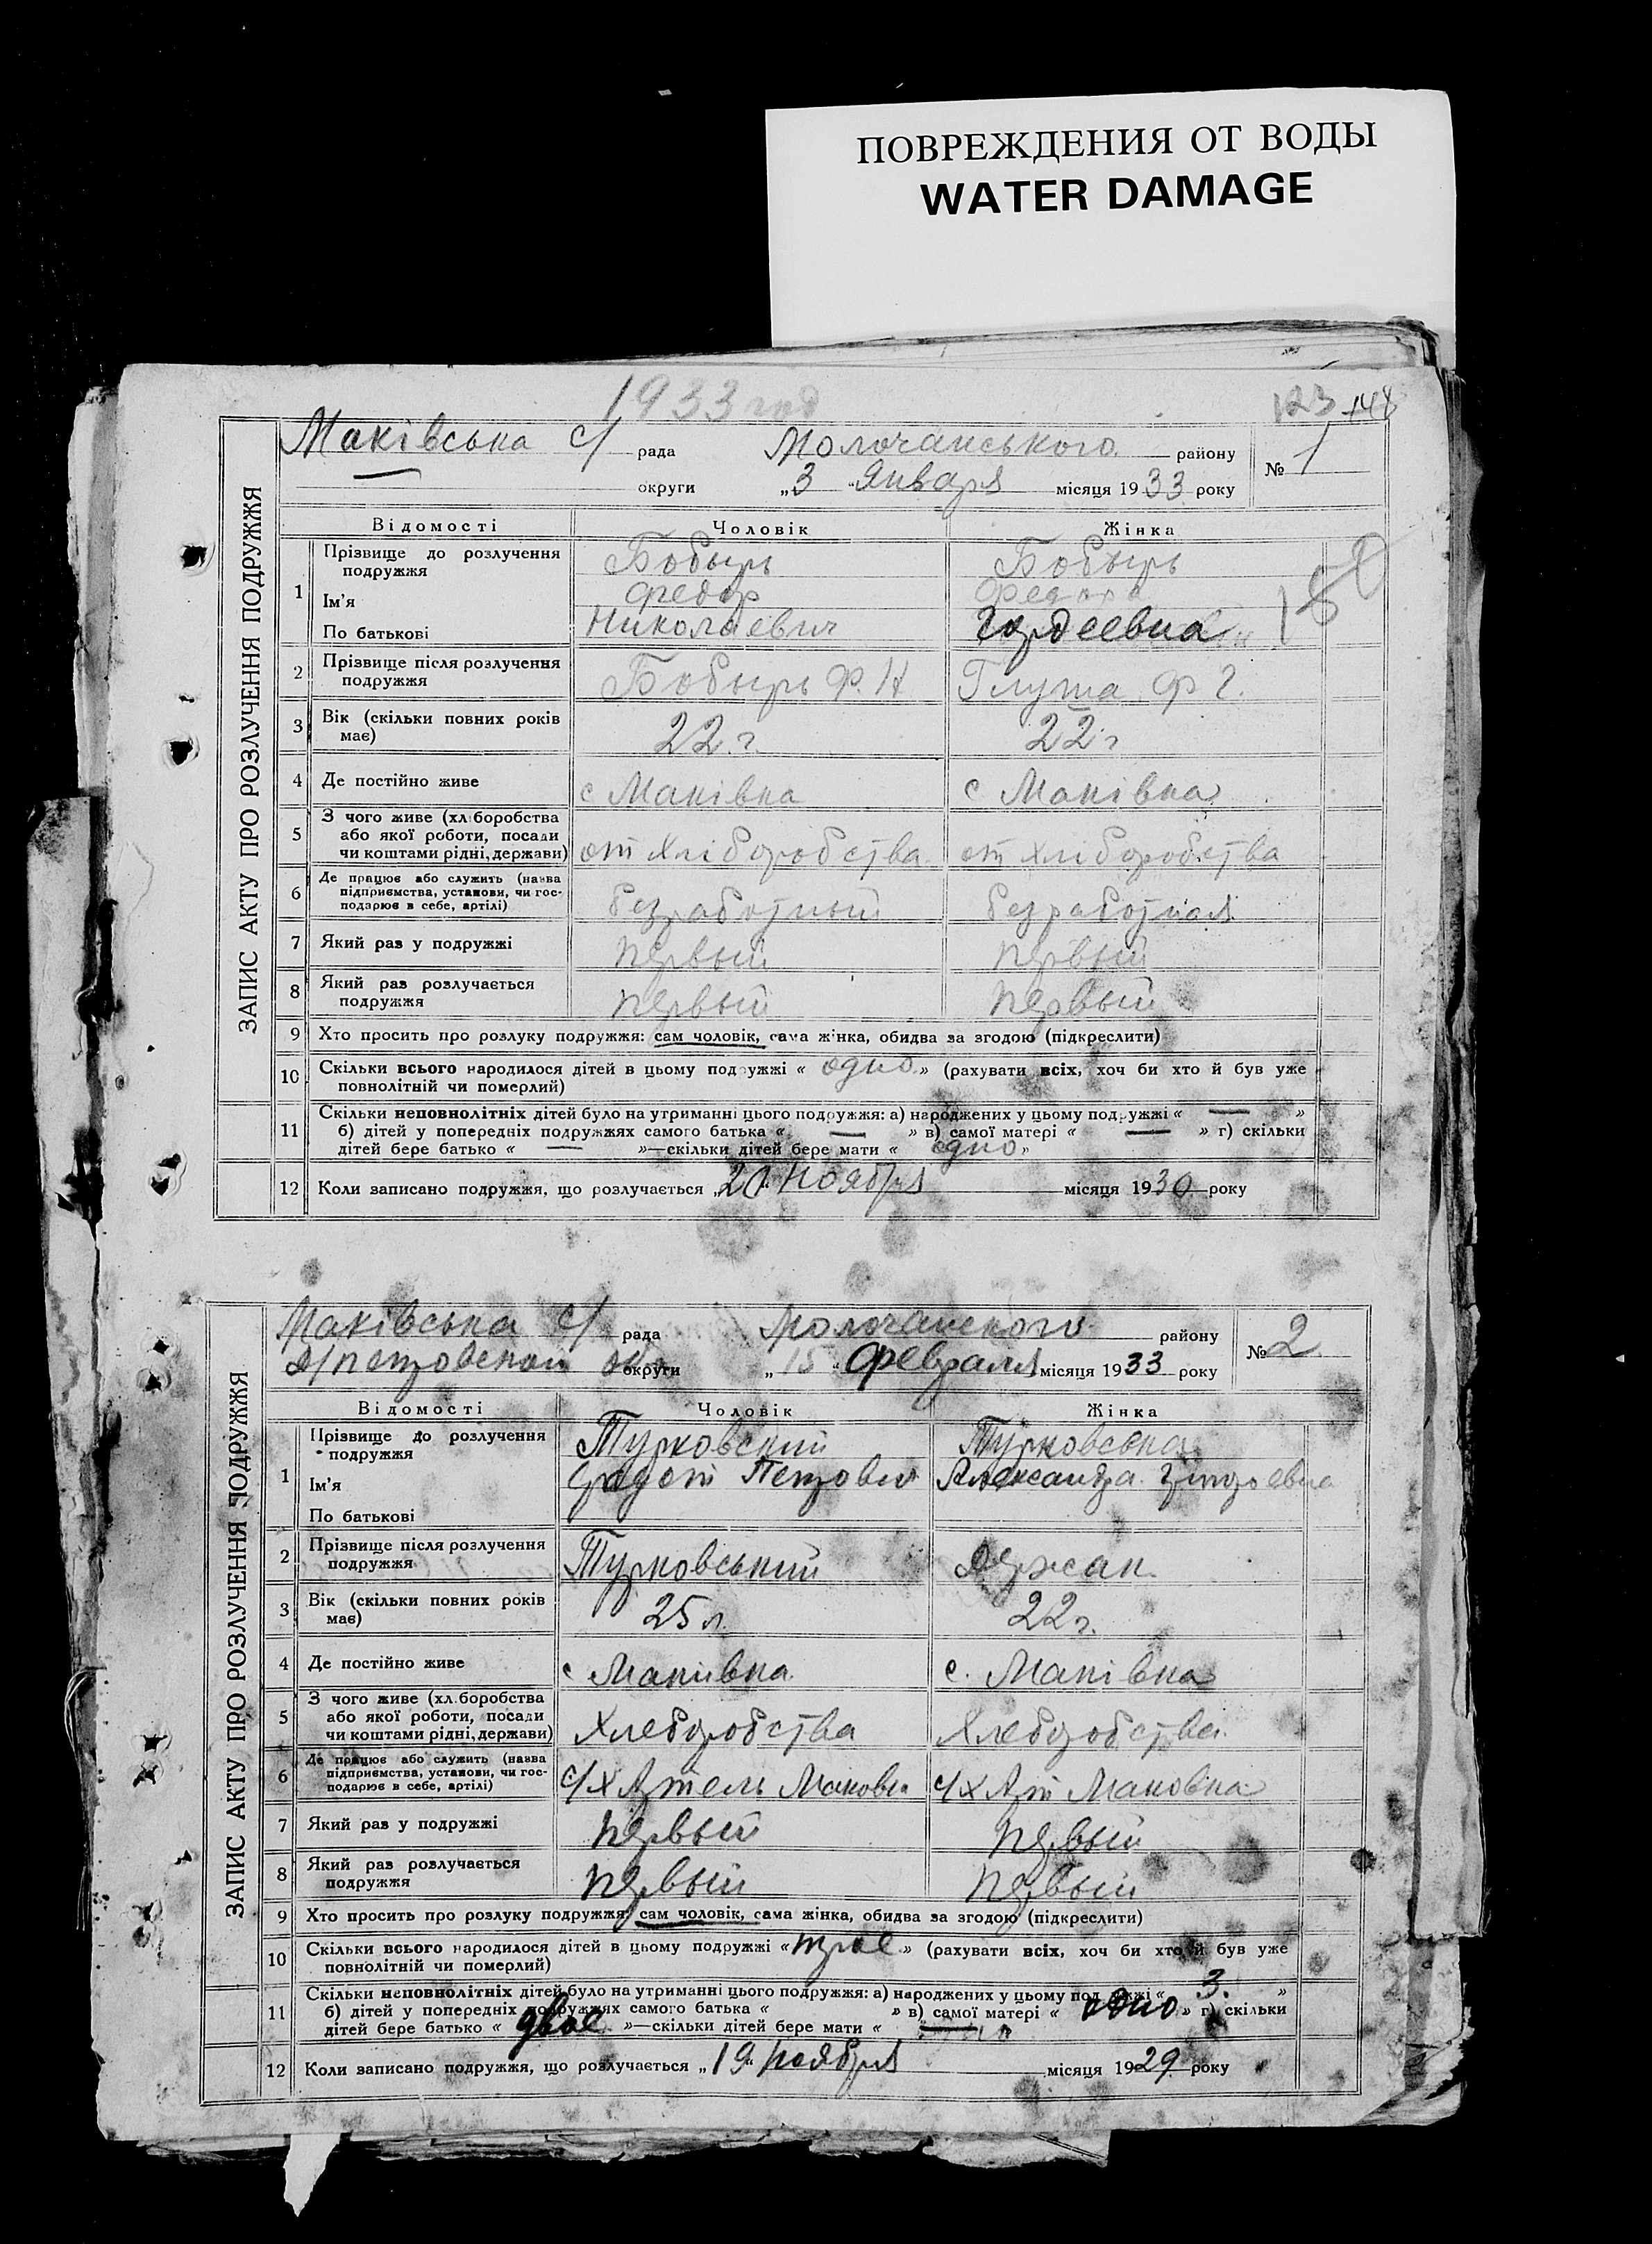 ПОВРЕЖДЕНИЯ ОТ ВОДЫ
WATER DAMAGE
1933 год
123 148
ЗАПИС АКТУ ПРО РОЗЛУЧЕННЯ ПОДРУЖЖЯ
Маківська с/ рада Молочанського району № 1
округи „3 " Января місяця 1933 року
Відомості Чоловік Жінка
1 Прізвище до розлучення подружжя Бобырь Бобырь
Ім'я Федор
По батькові Николаевич Гордеевна
2 Прізвище після розлучення подружжя Бобырь Ф. Н Ф Г.
3 Вік (скільки повних років має) 22 г. 22 г
4 Де постійно живе с Маківка с Маківка
5 З чого живе (хліборобства або якої роботи, посади чи коштами рідні, держави) от хліборобства от хліборобства
6 Де працює або служить (назва підприємства, установи, чи господарює в себе, артілі) безработный безработная
7 Який раз у подружжі первый первый
8 Який раз розлучається подружжя первый первый
9 Хто просить про розлуку подружжя: сам чоловік, сама жінка, обидва за згодою (підкреслити)
10 Скільки всього народилося дітей в цьому подружжі « одно » (рахувати всіх, хоч би хто й був уже
повнолітній чи померлий)
11 Скільки неповнолітніх дітей було на утриманні цього подружжя: а) народжених у цьому подружжі « — »
б) дітей у попередніх подружжях самого батька « — » в) самої матері « — » г) скільки
дітей бере батько « — »—скільки дітей бере мати « одно »
12 Коли записано подружжя, що розлучається „ Ноября місяця 1930 року
ЗАПИС АКТУ ПРО РОЗЛУЧЕННЯ ПОДРУЖЖЯ
Маківська с/ рада Молочанского району № 2
Д/петровской округи „15 " Февраля місяця 1933 року
Відомості Чоловік Жінка
1 Прізвище до розлучення подружжя Турковский Турковська
Ім'я Петрович Александра
По батькові
2 Прізвище після розлучення подружжя Турковський Держак
3 Вік (скільки повних років має) 25 л. 22 г.
4 Де постійно живе с Маківка с. Маківка
5 З чого живе (хліборобства або якої роботи, посади чи коштами рідні, держави) Хлеборобства Хлеборобства
6 Де працює або служить (назва підприємства, установи, чи господарює в себе, артілі) с/х Артель Маковка с/х Арт Маковка
7 Який раз у подружжі первый первый
8 Який раз розлучається подружжя первый первый
9 Хто просить про розлуку подружжя: сам чоловік, сама жінка, обидва за згодою (підкреслити)
10 Скільки всього народилося дітей в цьому подружжі « трое » (рахувати всіх, хоч би хто й був уже
повнолітній чи померлий)
11 Скільки неповнолітніх дітей було на утриманні цього подружжя: а) народжених у цьому подружжі « 3. »
б) дітей у попередніх подружжях самого батька « » в) самої матері « одно » г) скільки
дітей бере батько « двое »—скільки дітей бере мати « —
12 Коли записано подружжя, що розлучається „19" Ноября місяця 1929 року